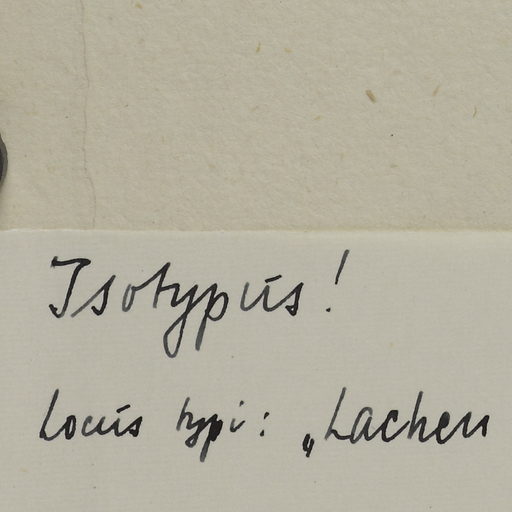 Isotypus!
Locus typi: „Lachen